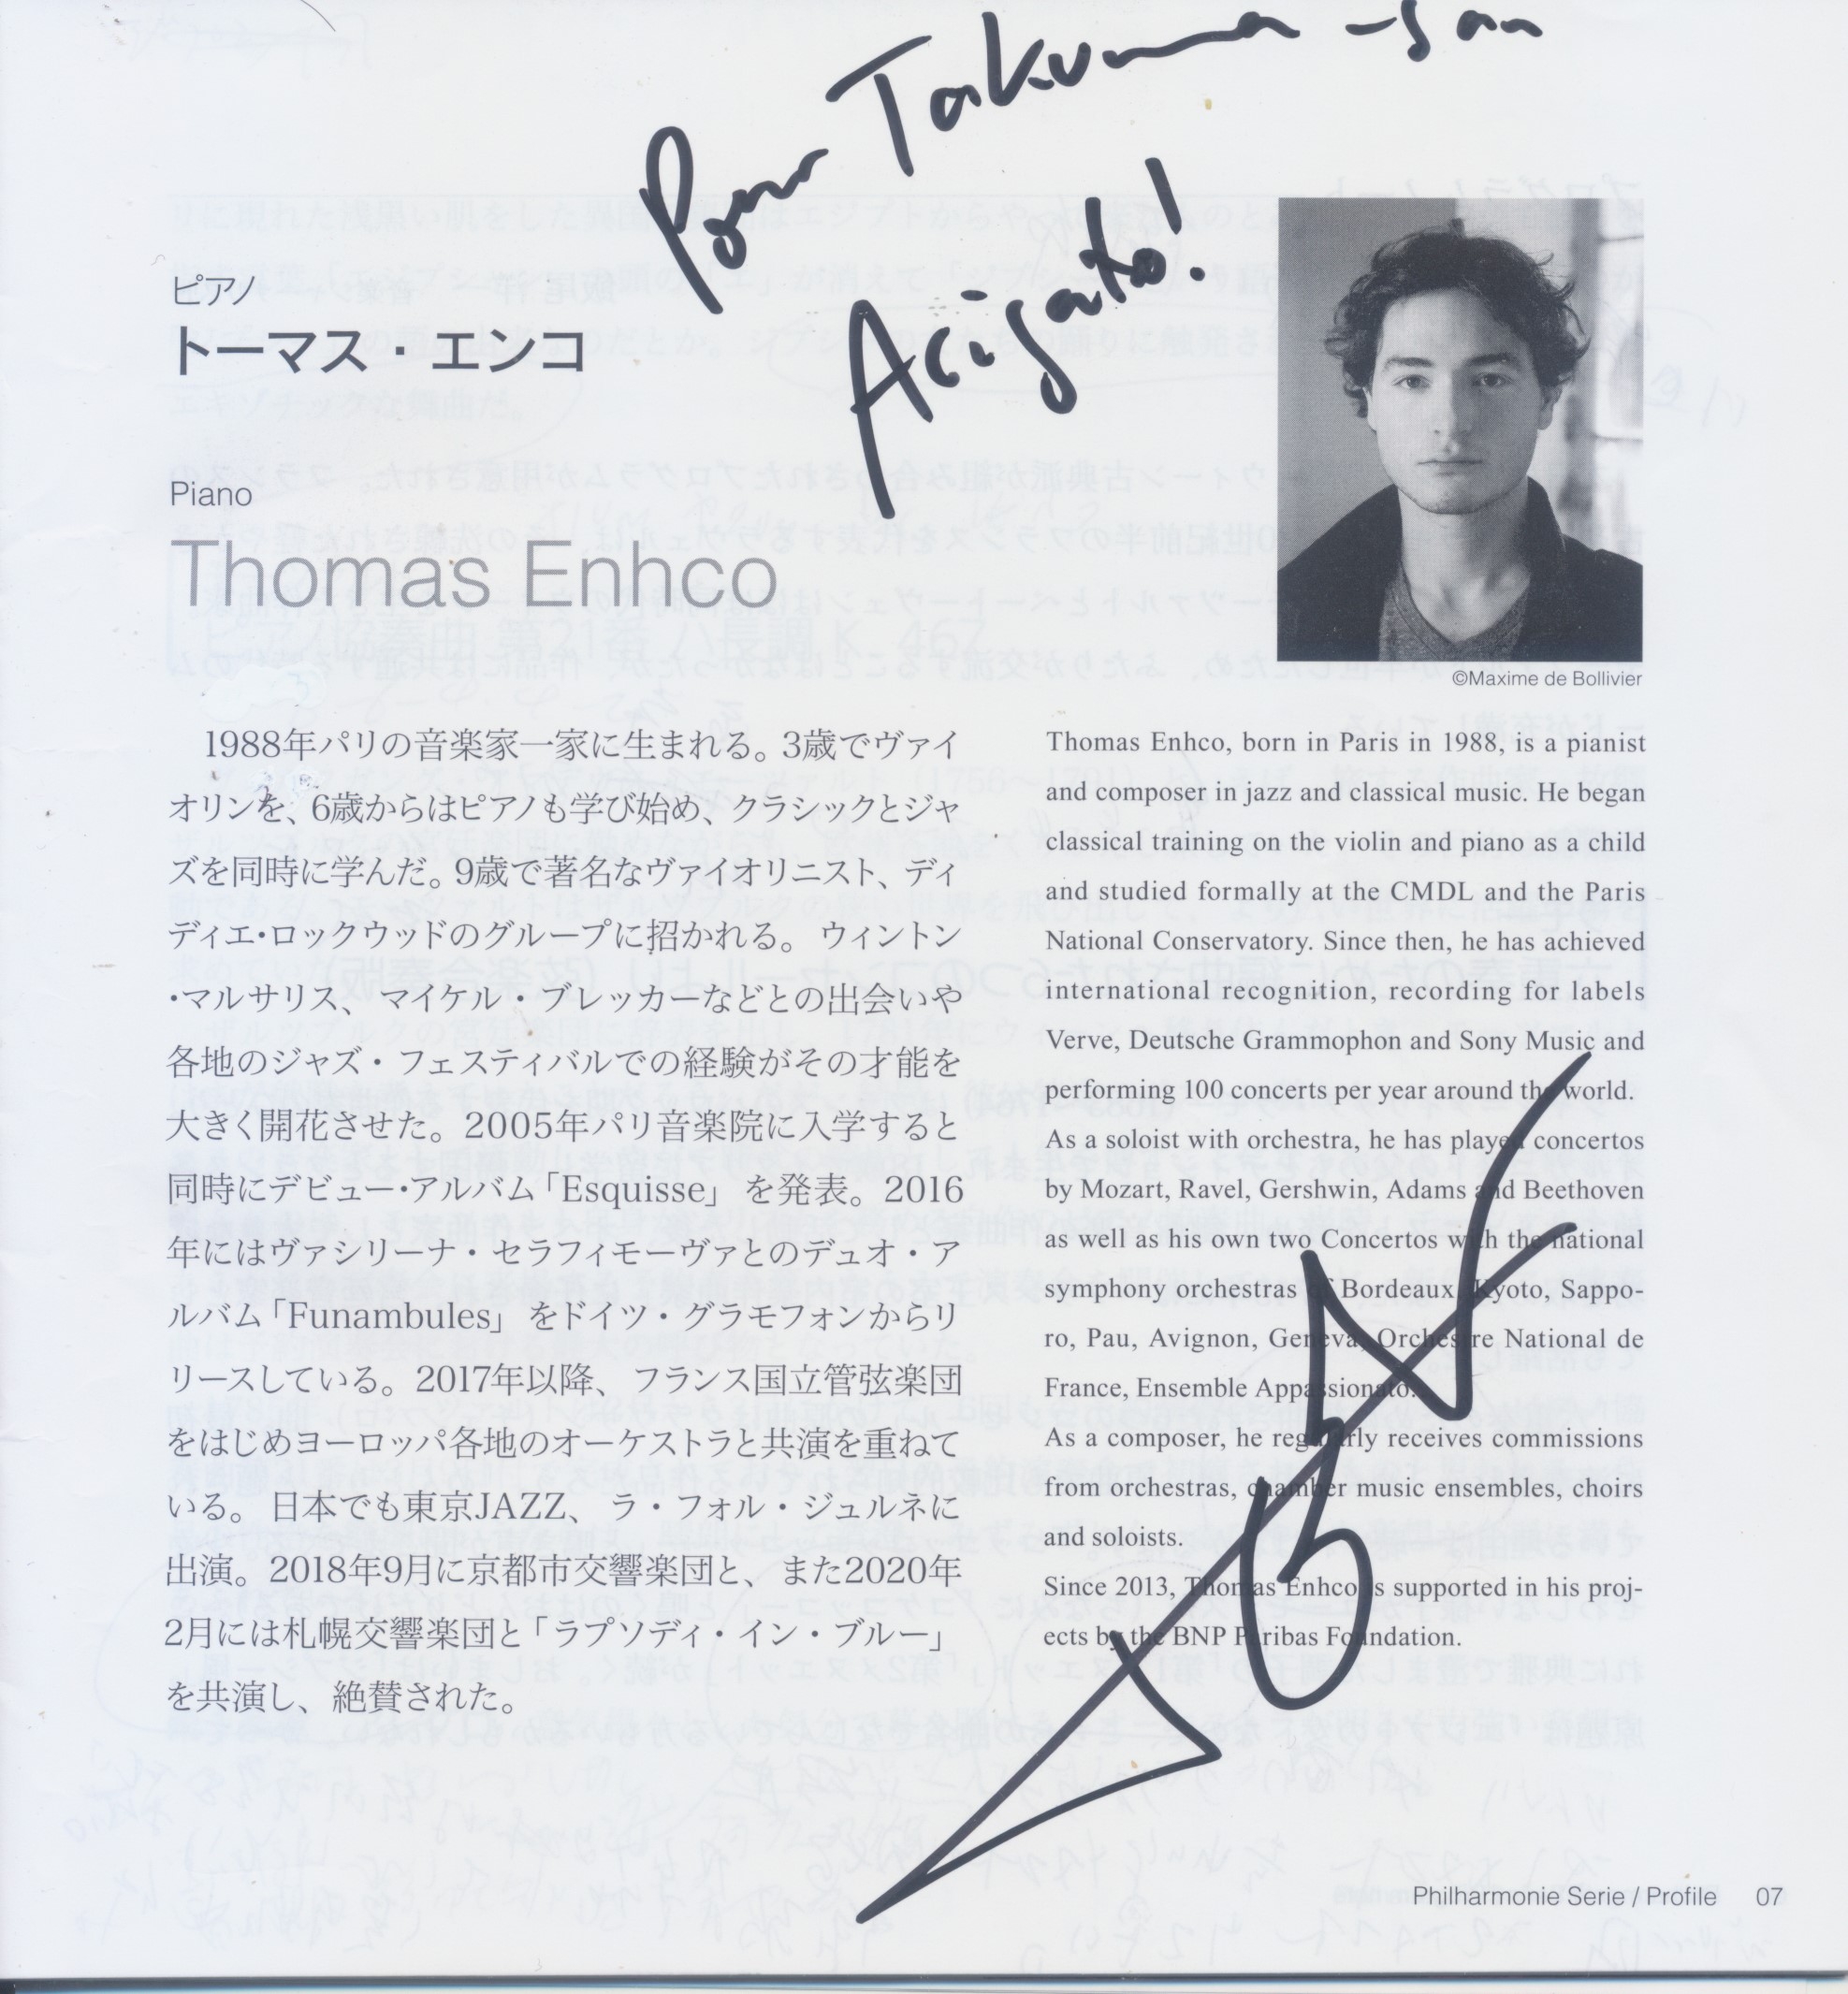 Pour Takuma-san
Arigato!
ピアノ
トーマス・エンコ
Piano
Thomas Enhco
©Maxime de Bollivier
1988年パリの音楽家一家に生まれる。3歳でヴァイ
オリンを、6歳からはピアノも学び始め、クラシックとジャ
ズを同時に学んだ。9歳で著名なヴァイオリニスト、ディ
ディエ・ロックウッドのグループに招かれる。ウィントン
・マルサリス、マイケル・ブレッカーなどとの出会いや
各地のジャズ・フェスティバルでの経験がその才能を
大きく開花させた。2005年パリ音楽院に入学すると
同時にデビュー・アルバム「Esquisse」を発表。2016
年にはヴァシリーナ・セラフィモーヴァとのデュオ・ア
ルバム「Funambules」をドイツ・グラモフォンからリ
リースしている。2017年以降、フランス国立管弦楽団
をはじめヨーロッパ各地のオーケストラと共演を重ねて
いる。日本でも東京JAZZ、ラ・フォル・ジュルネに
出演。2018年9月に京都市交響楽団と、また2020年
2月には札幌交響楽団と「ラプソディ・イン・ブルー」
を共演し、絶賛された。
Thomas Enhco, born in Paris in 1988, is a pianist
and composer in jazz and classical music. He began
classical training on the violin and piano as a child
and studied formally at the CMDL and the Paris
National Conservatory. Since then, he has achieved
international recognition, recording for labels
Verve, Deutsche Grammophon and Sony Music and
performing 100 concerts per year around the world.
As a soloist with orchestra, he has played concertos
by Mozart, Ravel, Gershwin, Adams and Beethoven
as well as his own two Concertos with the national
symphony orchestras of Bordeaux, Kyoto, Sappo-
ro, Pau, Avignon, Geneva, Orchestre National de
France, Ensemble Appassionato.
As a composer, he regularly receives commissions
from orchestras, chamber music ensembles, choirs
and soloists.
Since 2013, Thomas Enhco is supported in his proj-
ects by the BNP Paribas Foundation.
Philharmonie Serie / Profile 07